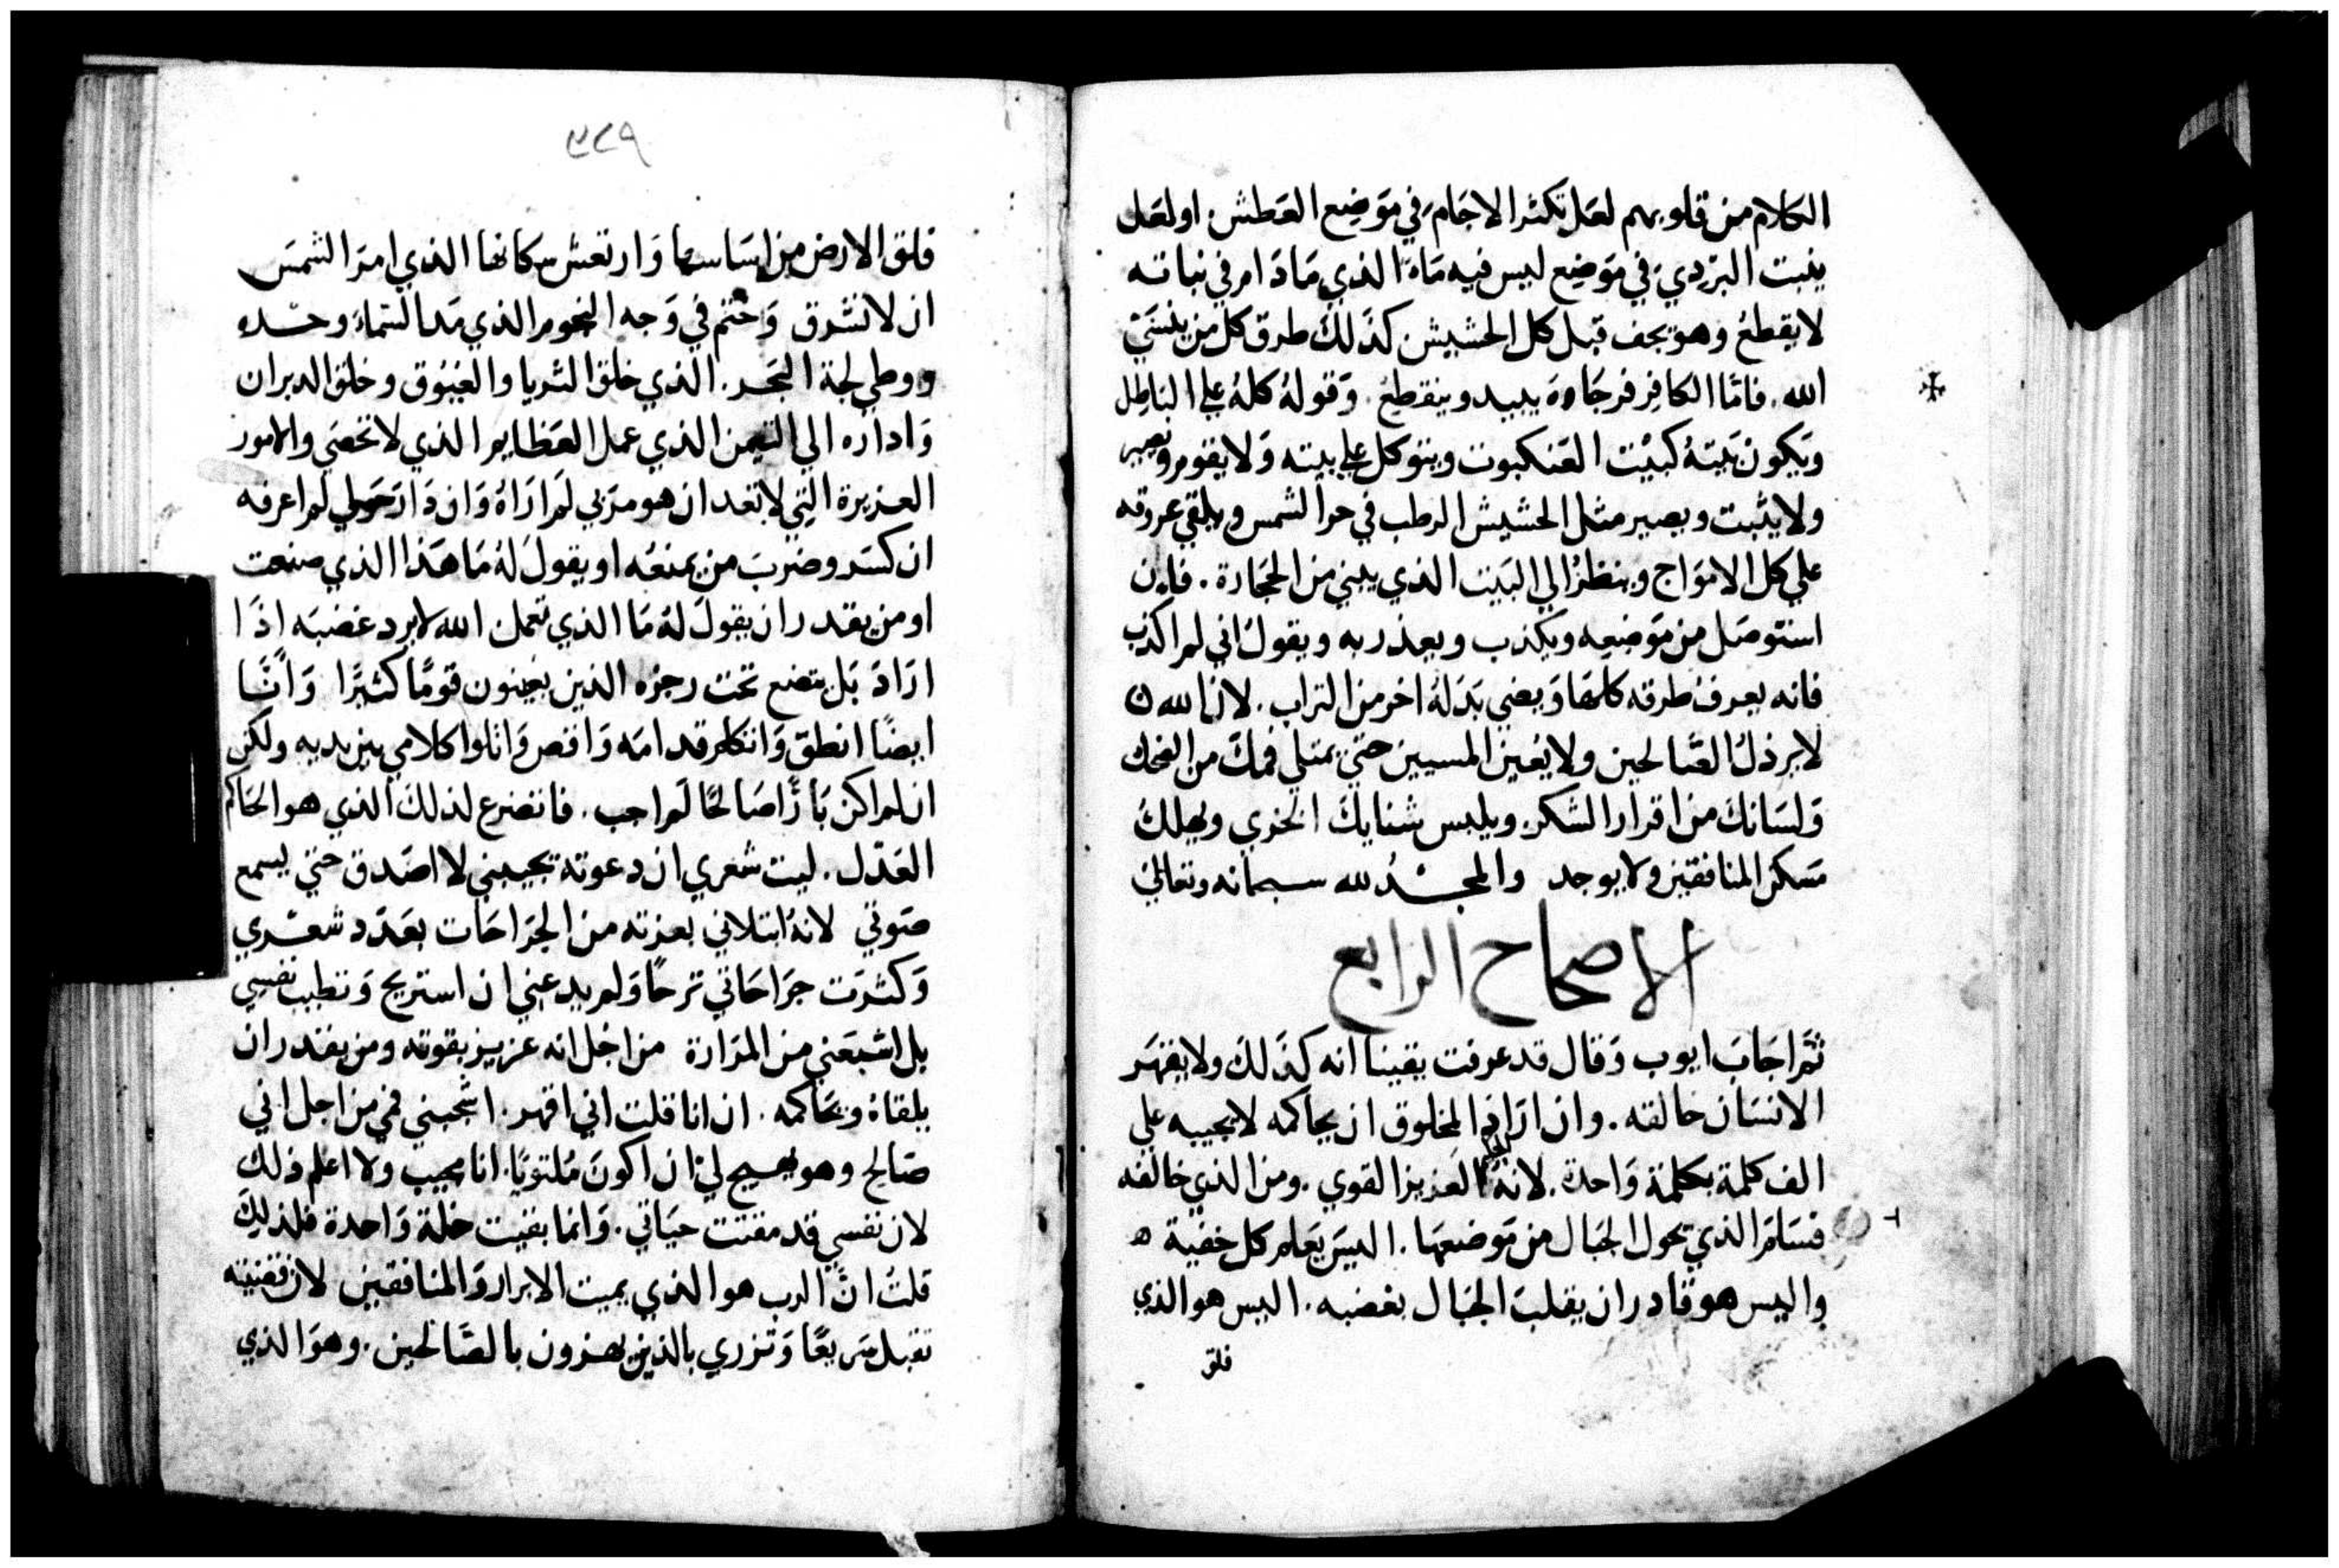 الكلام من قلوبهم لعل تكثر الاجام في موضع العطش او لعل
ينبت البردي في موضع ليس فيه ماء الذي ما دام في نباته
لا يقطع وهو يجف قبل كل الحشيش كذلك طرق كل من ينسي
الله. فاما الكافر فرجاوه يبيد وينقطع. وقوله كله علي الباطل
ويكون بيته كبيت العنكبوت ويتوكل علي بيته ولا يقوم ويصير
ولا يثبت ويصير مثل الحشيش الرطب في حر الشمس ويلقي عروقه
علي كل الامواج وينظر الي البيت الذي يبني من الحجارة. فاين
استوصل من موضعه ويكذب ويعذر به ويقول اني لم اكذب
فانه يعرف طرقه كلها ويعني بدله اخر من التراب. لان الله
لا يرذل الصالحين ولا يعين المسيين حتي يمتلي فمك من الضحك
ولسانك من اقرار الشكر ويلبس شنايك الخزي ويهلك
مسكن المنافقين ولا يوجد والمجد لله سبحانه وتعالي
الاصحاح الرابع
ثم اجاب ايوب وقال قد عرفت يقينا انه كذلك ولا يقهر
الانسان خالقه. وان اراد المخلوق ان يحاكمه لا يجيبه علي
الف كلمة بكلمة واحدة. لانه العزيز القوي. ومن الذي خالفه
فسلم الذي يحول الجبال من موضعها. اليس يعلم كل خفية
واليس هو قادر ان يقلب الجبال بغضبه. اليس هو الذي
فلق
٣٤٩
فلق الارض من اساسها وارتعش سكانها الذي امر الشمس
ان لا تشرق وختم في وجه النجوم الذي مد السماء وحده
ووطي لجة البحر. الذي خلق الثريا والعيوق وخلق الدبران
واداره الي التيمن الذي عمل العظايم الذي لا تحصي والامور
العزيزة التي لا تعد ان هو مر بي لم اراه وان دار حولي لم اعرفه
ان كسر وضرب من يمنعه او يقول له ما هذا الذي صنعت
او من يقدر ان يقول له ما الذي تعمل الله لا يرد غضبه اذا
اراد بل يتضع تحت رجزه الذين يعينون قوما كثيرا وانا
ايضا انطق واتكلم قدامه واقص واتلوا كلامي بين يديه ولكن
ان لم اكن بارا صالحا لم اجب. فاتضرع لذلك الذي هو الحاكم
العدل. ليت شعري ان دعوته تجيبني لا اصدق حتي يسمع
صوتي لانه ابتلاني بعزته من الجراحات بعدد شعري
وكثرت جراحاتي ترحا ولم يدعني ان استريح وتطيب نفسي
بل اشبعني من المرارة من اجل انه عزيز بقوته ومن يقدر ان
يلقاه ويحاكمه. ان انا قلت اني اقهر. اشجبني فمي من اجل اني
صالح وهو يصيح لي ان اكون ملتويا. انا مجيب ولا اعلم ذلك
لان نفسي قد مقتت حياتي. وانما بقيت خلة واحدة فلذلك
قلت ان الرب هو الذي يميت الابرار والمنافقين لان قضيته
تقبل سريعا وتزري بالذين يهزون بالصالحين. وهو الذي